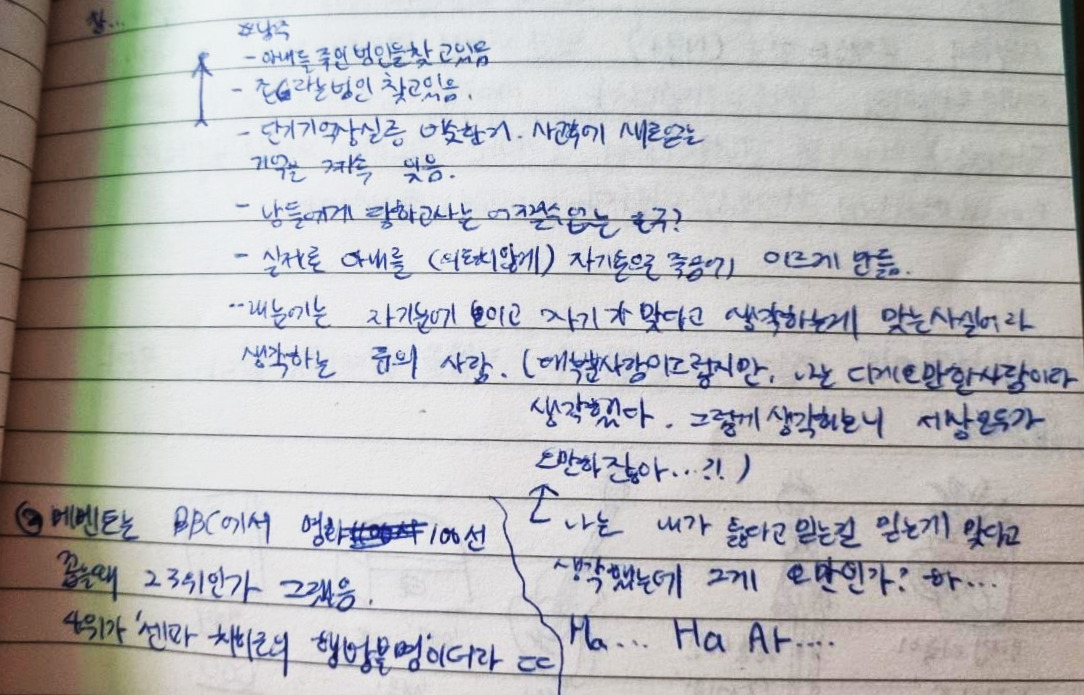 참...
※남주
- 아내를 죽인 범인을 찾고있음
- 존G라는 범인 찾고있음.
- 단기기억상실증 비슷한거. 사고후에 새로얻는
기억은 계속 잊음.
- 남들에게 당하고사는 어쩔수없는 호구?
- 실제로 아내를 (의도치않게) 자기손으로 죽음에 이르게 만듦.
- 내눈에는 자기눈에 보이고 자기가 맞다고 생각하는게 맞는사실이라
생각하는 류의 사람. (대부분사람이그렇지만, 나는 되게오만한사람이라
생각했다. 그렇게생각하보니 세상모두가
오만하잖아...?!)
② 메멘토는 BBC에서 영화 100선
꼽을때 23위인가 그랬음.
4위가 '센과 치히로의 행방불명'이더라 ㄷㄷ
나는 내가 옳다고믿는걸 믿는게 맞다고
생각했는데 그게 오만인가? 하...
Ha... Ha Ar....